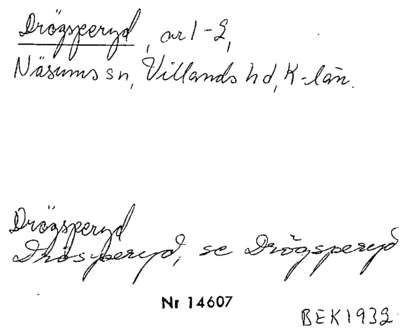 Drögsperyd, ar 1-2,
Näsums sn, Villands hd, K-län.
Drögsperyd
Drösperyd, se Drögsperyd
Nr 14607
BEK 1932